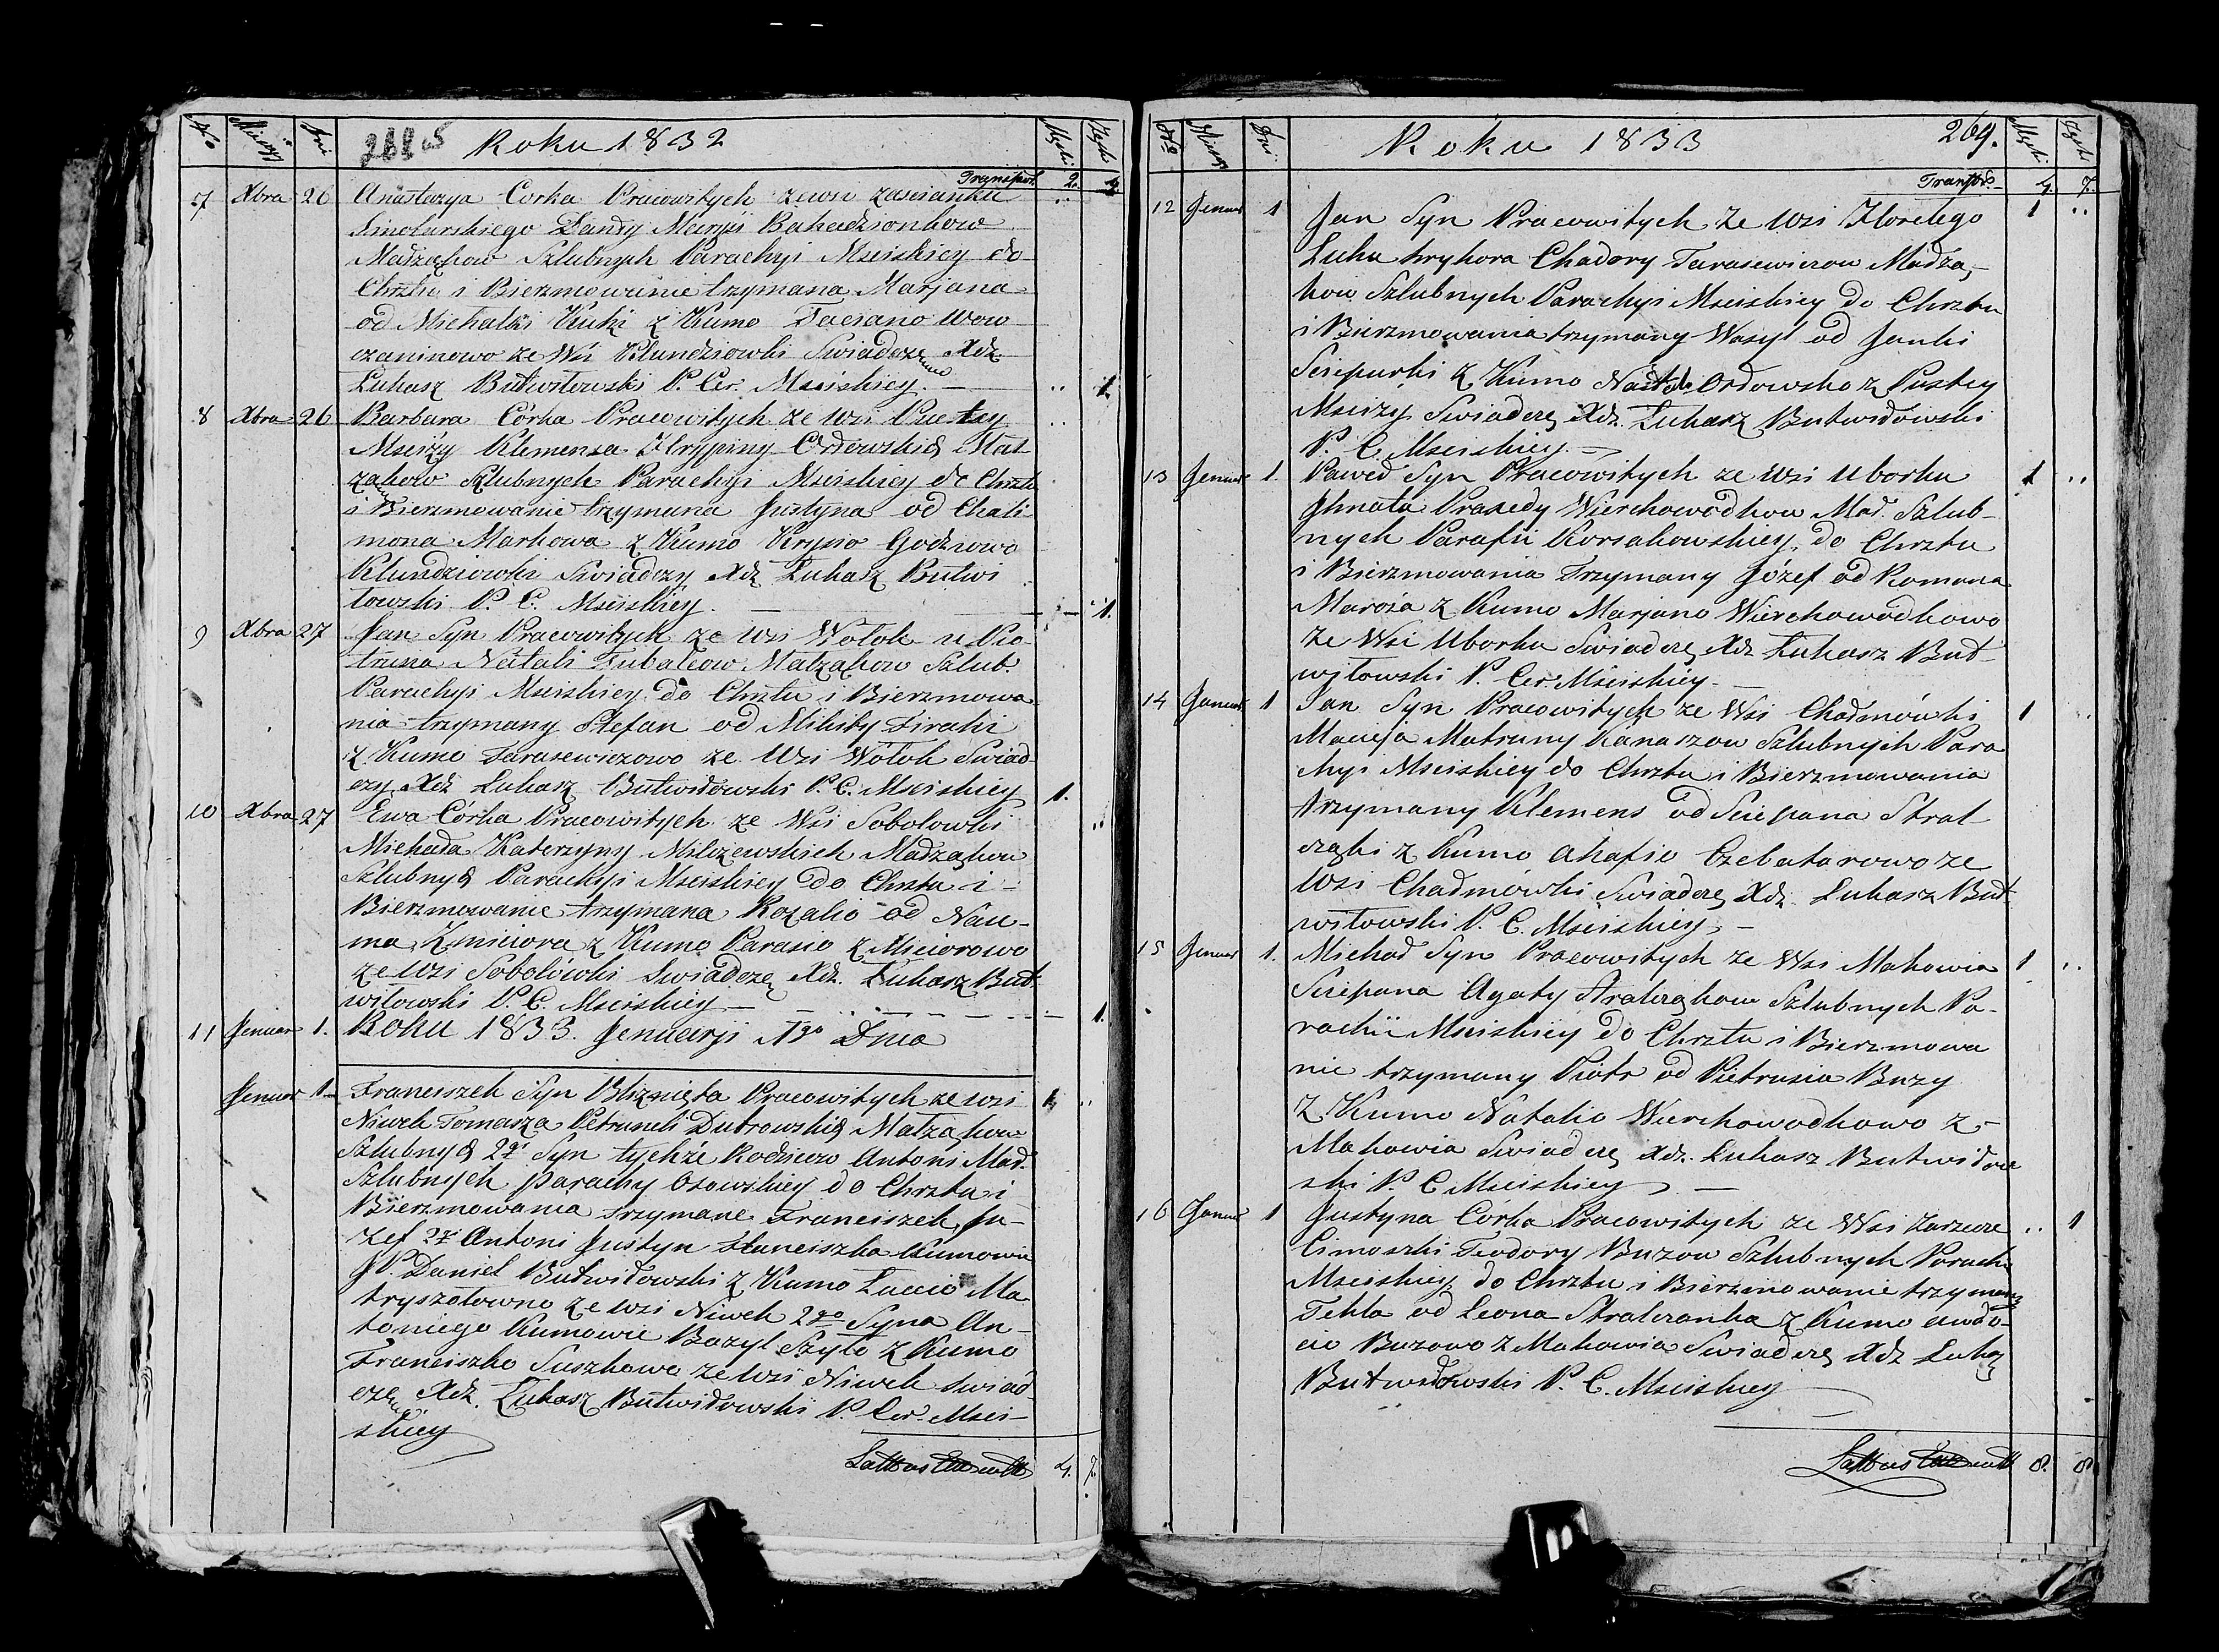 No Miesiąc Dni 268 Roku 1832 Męski Żęski
Transport 2. 4
7 Xbra 26 Anastazya Corka Pracowitych zewsi zascianku
Smolarskiego Maryi Bahadzionkow
Małząkow Szlubnych Parachyi Msciskiey do
Chrztu i Bierzmowanie trzymana Marjana
od Michalki Kutzi z Kumo Taciano Wow
czaninowo ze Wsi Klundziowki Swiadczę Xdz
Łukasz Butwiłowski P. Cer. Msciskiey. — .. 1.
8 Xbra 26 Barbara Córka Pracowitych ze Wsi Pustey
Msciży Klemensa Ordowskich Mał
żakow Szlubnych Parachyi Msciskiey do Chrztu
i Bierzmowanie trzymana Justyna od Chali-
mona Markowa z Kumo Krysio Godziowo
Klundziowki Swiadczy Xdz Łukasz Butwi
łowski P. C. Msciskiey. — 1.
9 Xbra 27 Jan Syn Pracowitych ze Wsi Wołok u Pio-
truna Natali Małząkow Szlub.
Parachyi Msciskiey do Chrztu i Bierzmowa
nia trzymany Stefan od Mikity
z Kumo Tarasewiczowo ze Wsi Wołok Swiad
czy Xdz Łukasz Butwiłowski P. C. Msciskiey 1.
10 Xbra 27 Ewa Córka Pracowitych ze Wsi Sobolowki ..
Michała Katerzyny Milczewskich Małząkow
Szlubnych Parachyi Msciskiey do Chrztu i
Bierzmowanie trzymana Rozalio od Nau-
ma Zmiciora z Kumo Parasio z Miciorowo
ze Wsi Sobolówki Swiadczę Xdz. Łukasz But
wiłowski P. C. Msciskiey — 1.
11 Jenuar 1. Roku 1833. Jenuarji 1go Dnia
Jenuar 1 Franciszek Syn Bliznięta Pracowitych ze wsi 1 ..
Niwek Tomasza Petruneli Dubrowskich Małząkow
Szlubnych 2gi Syn tychże Rodziców Antoni Mał.
Szlubnych parachy Osowskiey do Chrztu i
Bierzmowania trzymane Franciszek Ju-
zef 2gi Antoni Justyn Kumowie
JP. Daniel Butwiłowski z Kumo Łucio Ma
ze wsi Niwek 2go Syna An-
toniego Kumowie Bazyl Szyło z Kumo
Franciszko Suszkowo ze Wsi Niwek Swiad
czę Xdz. Łukasz Butwiłowski P. Cer. Msci-
skiey
Lattus 4. 7.
No Miesiąc Dni Roku 1833 269. Męski Żęski
Transport 4. 7.
12 Jenuar 1 Jan Syn Pracowitych ze Wsi 1 ..
Łuhu hryhora Chadory Tarasewiczow Małżą-
kow Szlubnych Parachyi Msciskiey do Chrztu
i Bierzmowania trzymany Wasyl od Janki
Sciepurki z Kumo Ordowsko z Pustey
Msciży Swiadczę Xdz. Łukasz Butwiłowski
P. C. Msciskiey. —
13 Jenuar 1. Paweł Syn Pracowitych ze Wsi Uborku 1 ..
Jhnata Praxedy Wierchowodkow Mał. Szlub-
nych Parafii Korsakowskiey, do Chrztu
i Bierzmowania Trzymany Józef od Romana
Maroza z Kumo Marjano Wierchowodkowo
ze Wsi Uborku Swiadczę Xdz Łukasz But-
wiłowski P. Cer. Msciskiey. —
14 Januar 1 Jan Syn Pracowitych ze Wsi Chadmówki 1 ..
Macieja Matruny Kanaszow Szlubnych Para
chyi Msciskiey do Chrztu i Bierzmowania
trzymany Klemens od Sciepana Stral
cząki z Kumo Ahafio Czebatarowo ze
Wsi Chadmówki Swiadczę Xdz. Łukasz But
wiłowski P. C. Msciskiey. —
15 Jenuar 1. Michał Syn Pracowitych ze Wsi Makowia 1 ..
Sciepana Agaty Stralcząkow Szlubnych Pa-
rachii Msciskiey do Chrztu i Bierzmowa
nie trzymany Piotr od Pietrusia Buzy
Z Kumo Natalio Wierchowodkowo z
Makowia Swiadczę Xdz. Łukasz Butwiłow
ski P. C Msciskiey —
16 Januar 1 Justyna Córka Pracowitych ze Wsi Zarzecze .. 1
Cimoszki Teodory Buzow Szlubnych Parachi
Msciskiey do Chrztu i Bierzmowanie trzymana
Tekla od Leona Stralczonka z Kumo Awdo-
cio Buzowo z Makowia Swiadczę Xdz Łukasz
Butwiłowski P. C. Mscisky
Lattus 8. 8